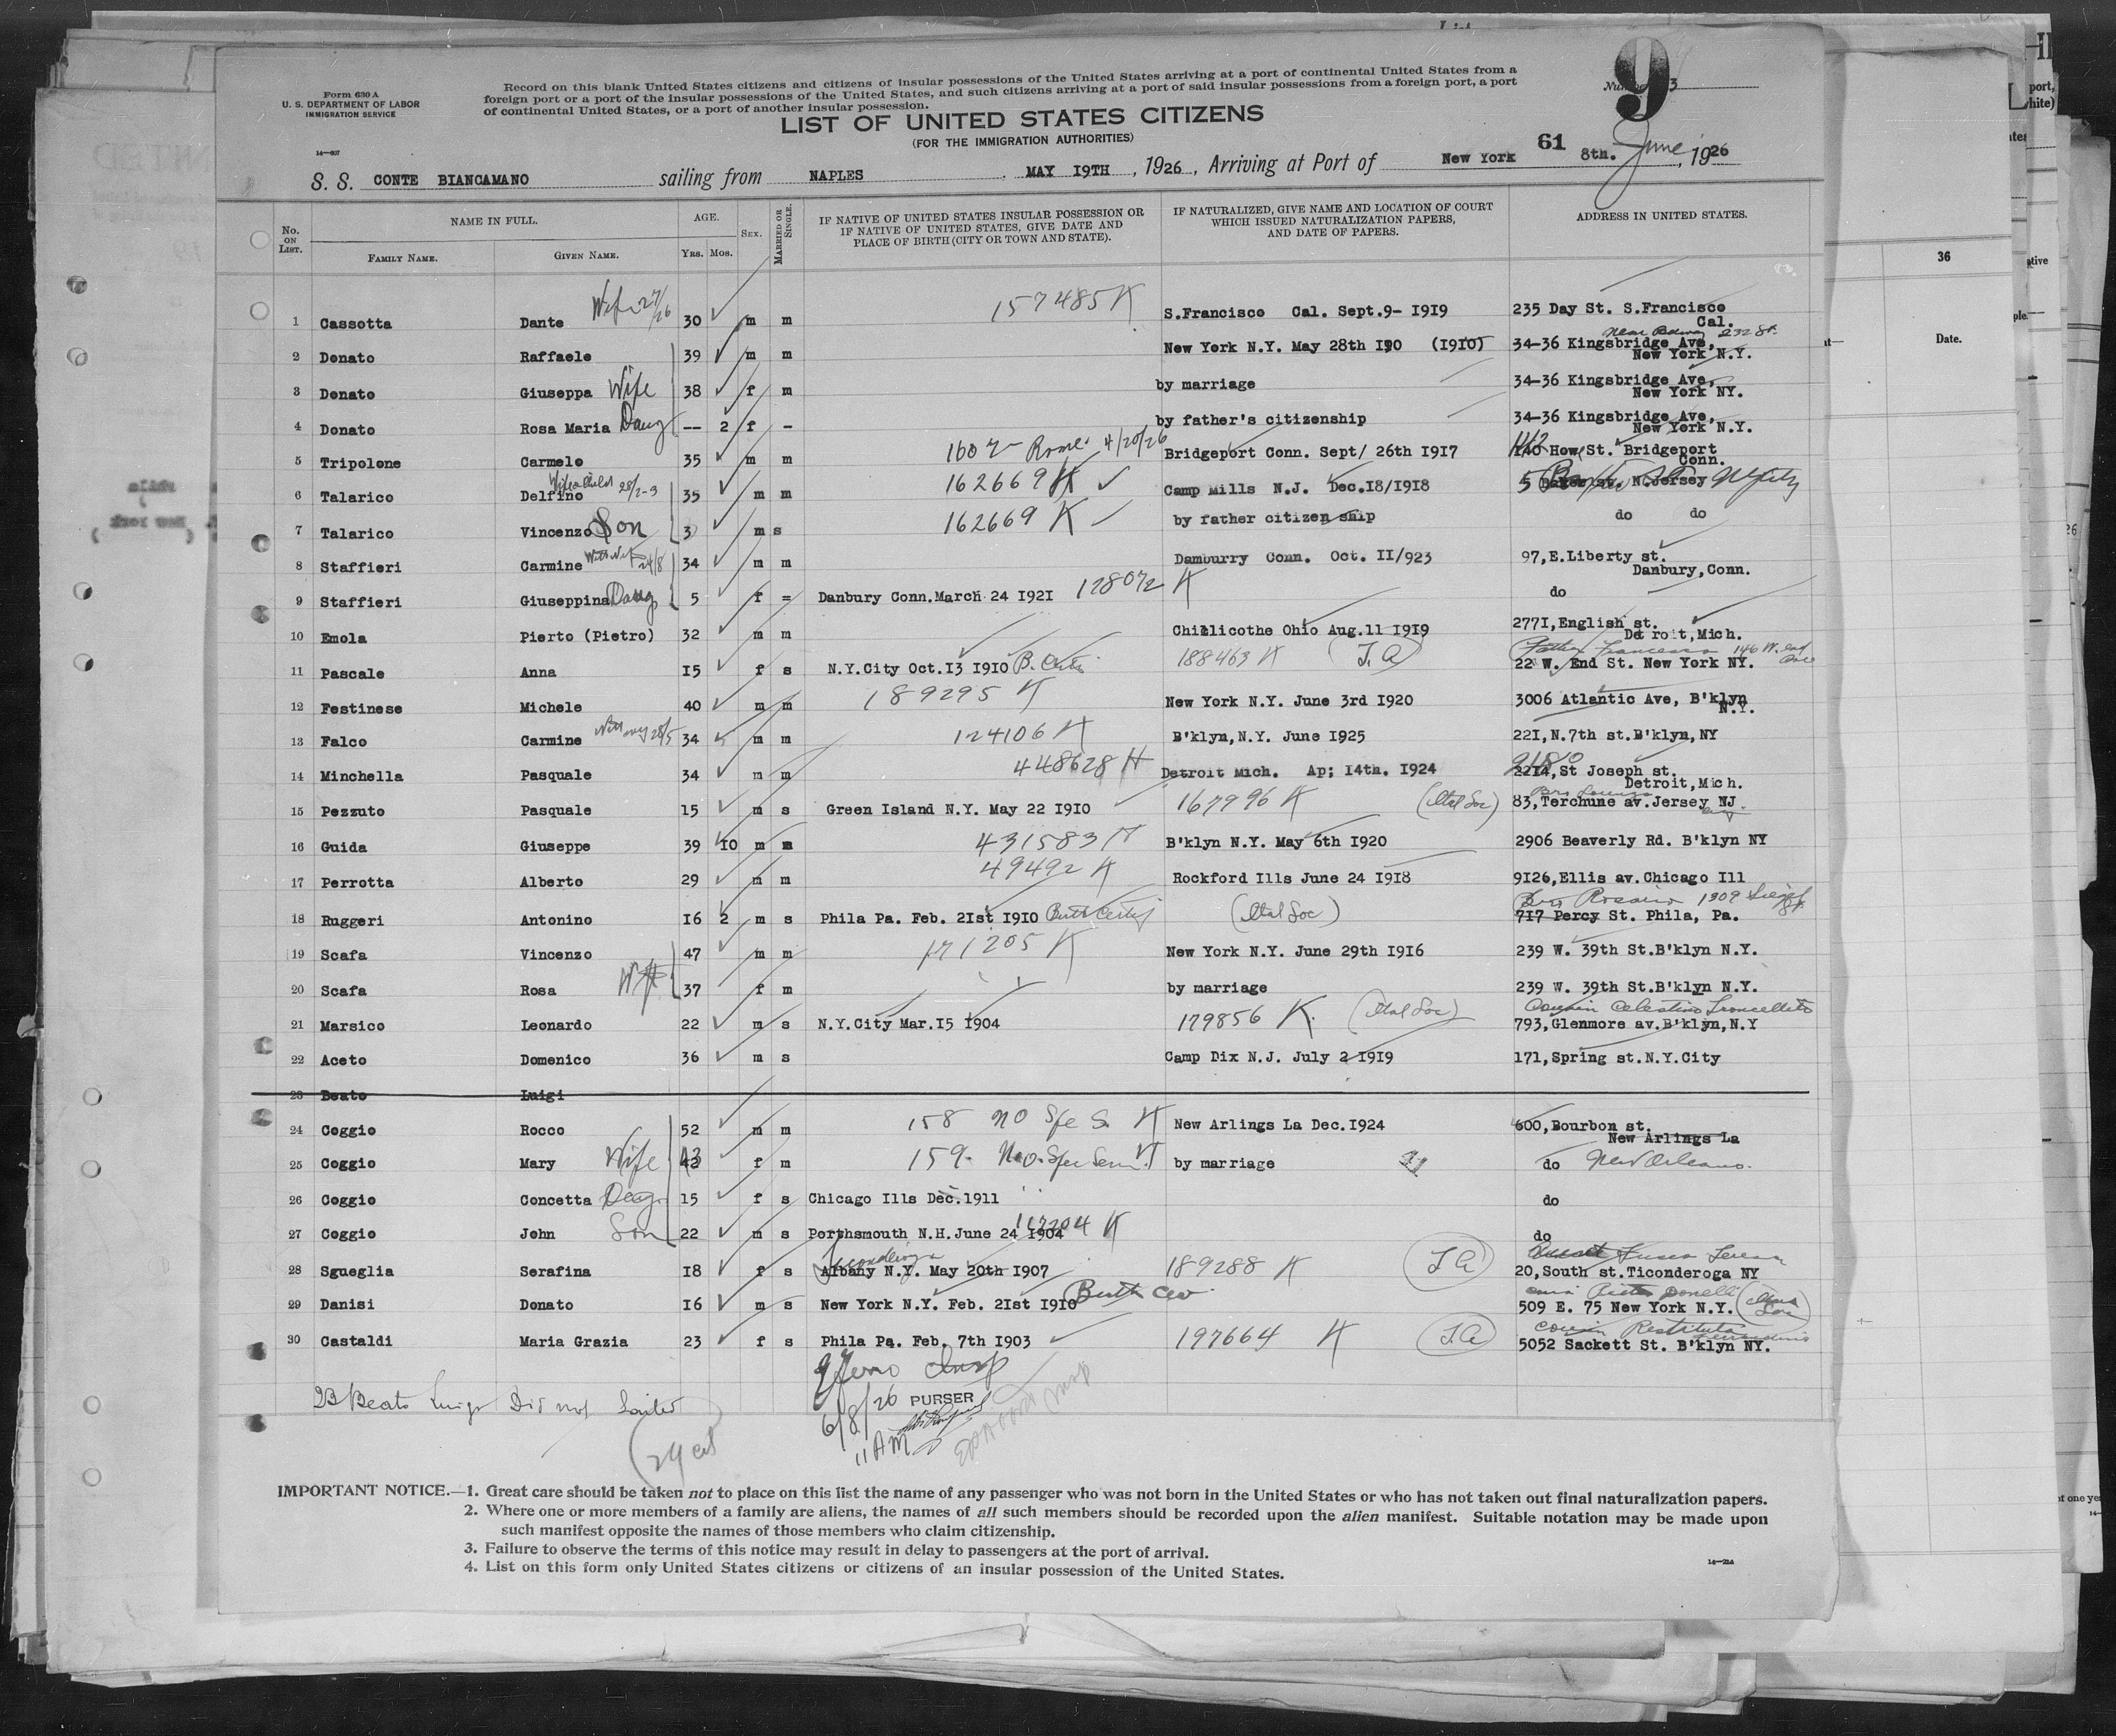 Form 630 A
U. S. DEPARTMENT OF LABOR
IMMIGRATION SERVICE
14—607
Record on this blank United States citizens and citizens of insular possessions of the United States arriving at a port of continental United States from a
foreign port or a port of the insular possessions of the United States, and such citizens arriving at a port of said insular possessions from a foreign port, a port
of continental United States, or a port of another insular possession.
9
3
LIST OF UNITED STATES CITIZENS
(FOR THE IMMIGRATION AUTHORITIES)
61
S. S. CONTE BIANCAMANO sailing from NAPLES . MAY I9TH , 1926 , Arriving at Port of New York 8th. June , 1926
No. ON LIST. NAME IN FULL. FAMILY NAME. GIVEN NAME. AGE. YRS. MOS. SEX. MARRIED OR SINGLE. IF NATIVE OF UNITED STATES INSULAR POSSESSION OR IF NATIVE OF UNITED STATES, GIVE DATE AND PLACE OF BIRTH (CITY OR TOWN AND STATE). IF NATURALIZED, GIVE NAME AND LOCATION OF COURT WHICH ISSUED NATURALIZATION PAPERS, AND DATE OF PAPERS. ADDRESS IN UNITED STATES.
1 Cassotta Dante 30 m m 157485 K S.Francisco Cal. Sept.9- I9I9 235 Day St. S.Francisco Cal.
2 Donato Raffaele 39 m m New York N.Y. May 28th (I9I0) 34-36 Kingsbridge Ave, New York N.Y.
3 Donato Giuseppa Wife 38 f m by marriage 34-36 Kingsbridge Ave, New York NY.
4 Donato Rosa Maria Daug -- 2 f - by father's citizenship 34-36 Kingsbridge Ave, New York N.Y.
5 Tripolone Carmelo 35 m m Rome 4/20/26 Bridgeport Conn. Sept/ 26th I9I7 How St. Bridgeport Conn.
6 Talarico Delfino 35 m m 162669 K Camp Mills N.J. Dec.I8/I9I8 5 N.Jersey
7 Talarico Vincenzo Son 3 m s 162669 K by father citizen ship do do
8 Staffieri Carmine 34 m m Damburry Conn. Oct. II/923 97,E.Liberty st. Danbury,Conn.
9 Staffieri Giuseppina Daug 5 f = Danbury Conn.March 24 I92I 128072 K do
10 Emola Pierto (Pietro) 32 m m Chillicothe Ohio Aug.11 I9I9 277I,English st. Detroit,Mich.
11 Pascale Anna I5 f s N.Y.City Oct.I3 I9I0 188463 K 22 W. End St. New York NY.
12 Festinese Michele 40 m m 189295 K New York N.Y. June 3rd I920 3006 Atlantic Ave, B'klyn N.Y.
13 Falco Carmine 34 m m 124106 K B'klyn,N.Y. June I925 22I,N.7th st.B'klyn,NY
14 Minchella Pasquale 34 m m 448628 H Detroit Mich. Ap; I4th. I924 St Joseph st. Detroit,Mich.
15 Pezzuto Pasquale I5 m s Green Island N.Y. May 22 I9I0 167996 K (Ital Soc) 83,Terchune av.Jersey NJ
16 Guida Giuseppe 39 IO m m 431583 H B'klyn N.Y. May 6th I920 2906 Beaverly Rd. B'klyn NY
17 Perrotta Alberto 29 m m 49492 K Rockford Ills June 24 I9I8 9I26,Ellis av.Chicago Ill
18 Ruggeri Antonino I6 2 m s Phila Pa. Feb. 2Ist I9I0 Birth Certif (Ital Soc) 717 Percy St. Phila, Pa.
19 Scafa Vincenzo 47 m m 171205 K New York N.Y. June 29th I9I6 239 W. 39th St.B'klyn N.Y.
20 Scafa Rosa Wife 37 f m by marriage 239 W. 39th St.B'klyn N.Y.
21 Marsico Leonardo 22 m s N.Y.City Mar.I5 I904 179856 K. (Ital Soc) 793,Glenmore av.B'klyn,N.Y
22 Aceto Domenico 36 m s Camp Dix N.J. July 2 I9I9 I7I,Spring st.N.Y.City
23 Beato Luigi
24 Coggio Rocco 52 m m 158 NO K New Arlings La Dec.I924 600,Bourbon st. New Arlings La
25 Coggio Mary Wife f m 159 by marriage do New Orleans.
26 Coggio Concetta Daug. I5 f s Chicago Ills Dec.I911 do
27 Coggio John Son 22 m s Porthsmouth N.H.June 24 I904 K do
28 Sgueglia Serafina I8 f s Albany N.Y. May 20th I907 189288 K 20,South st.Ticonderoga NY
29 Danisi Donato I6 m s New York N.Y. Feb. 2Ist I9I0 Birth 509 E. 75 New York N.Y.
30 Castaldi Maria Grazia 23 f s Phila Pa. Feb. 7th I903 197664 K 5052 Sackett St. B'klyn NY.
23 Beato Luigi Did not Sailed
6/8/26 PURSER
11 AM
IMPORTANT NOTICE.—1. Great care should be taken not to place on this list the name of any passenger who was not born in the United States or who has not taken out final naturalization papers.
2. Where one or more members of a family are aliens, the names of all such members should be recorded upon the alien manifest. Suitable notation may be made upon
such manifest opposite the names of those members who claim citizenship.
3. Failure to observe the terms of this notice may result in delay to passengers at the port of arrival.
4. List on this form only United States citizens or citizens of an insular possession of the United States.
14—21A
36
Date.